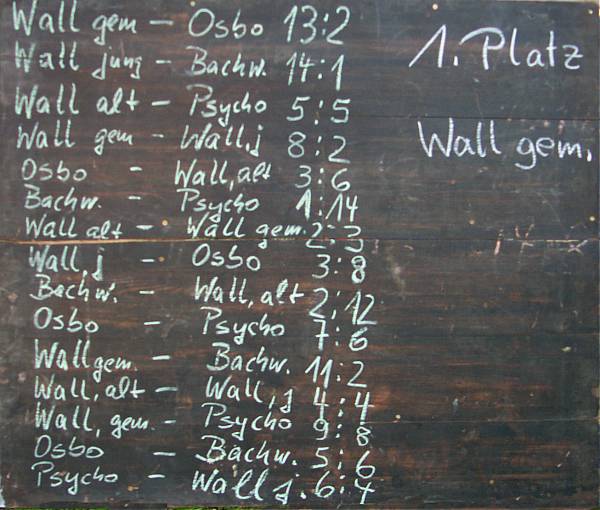 Wall gem - Osbo 13:2
Wall jung - Bachw. 14:1
Wall alt - Psycho 5:5
Wall gem - Wall,j 8:2
Osbo - Wall,alt 3:6
Bachw. - Psycho 1:14
Wall alt - Wall gem. 2:3
Wall,j - Osbo 3:8
Bachw. - Wall,alt 2:12
Osbo - Psycho 7:6
Wall gem. - Bachw. 11:2
Wall,alt - Wall,j 4:4
Wall, gem. - Psycho 9:8
Osbo - Bachw. 5:6
Psycho - Wall j. 6:4
1. Platz
Wall gem.